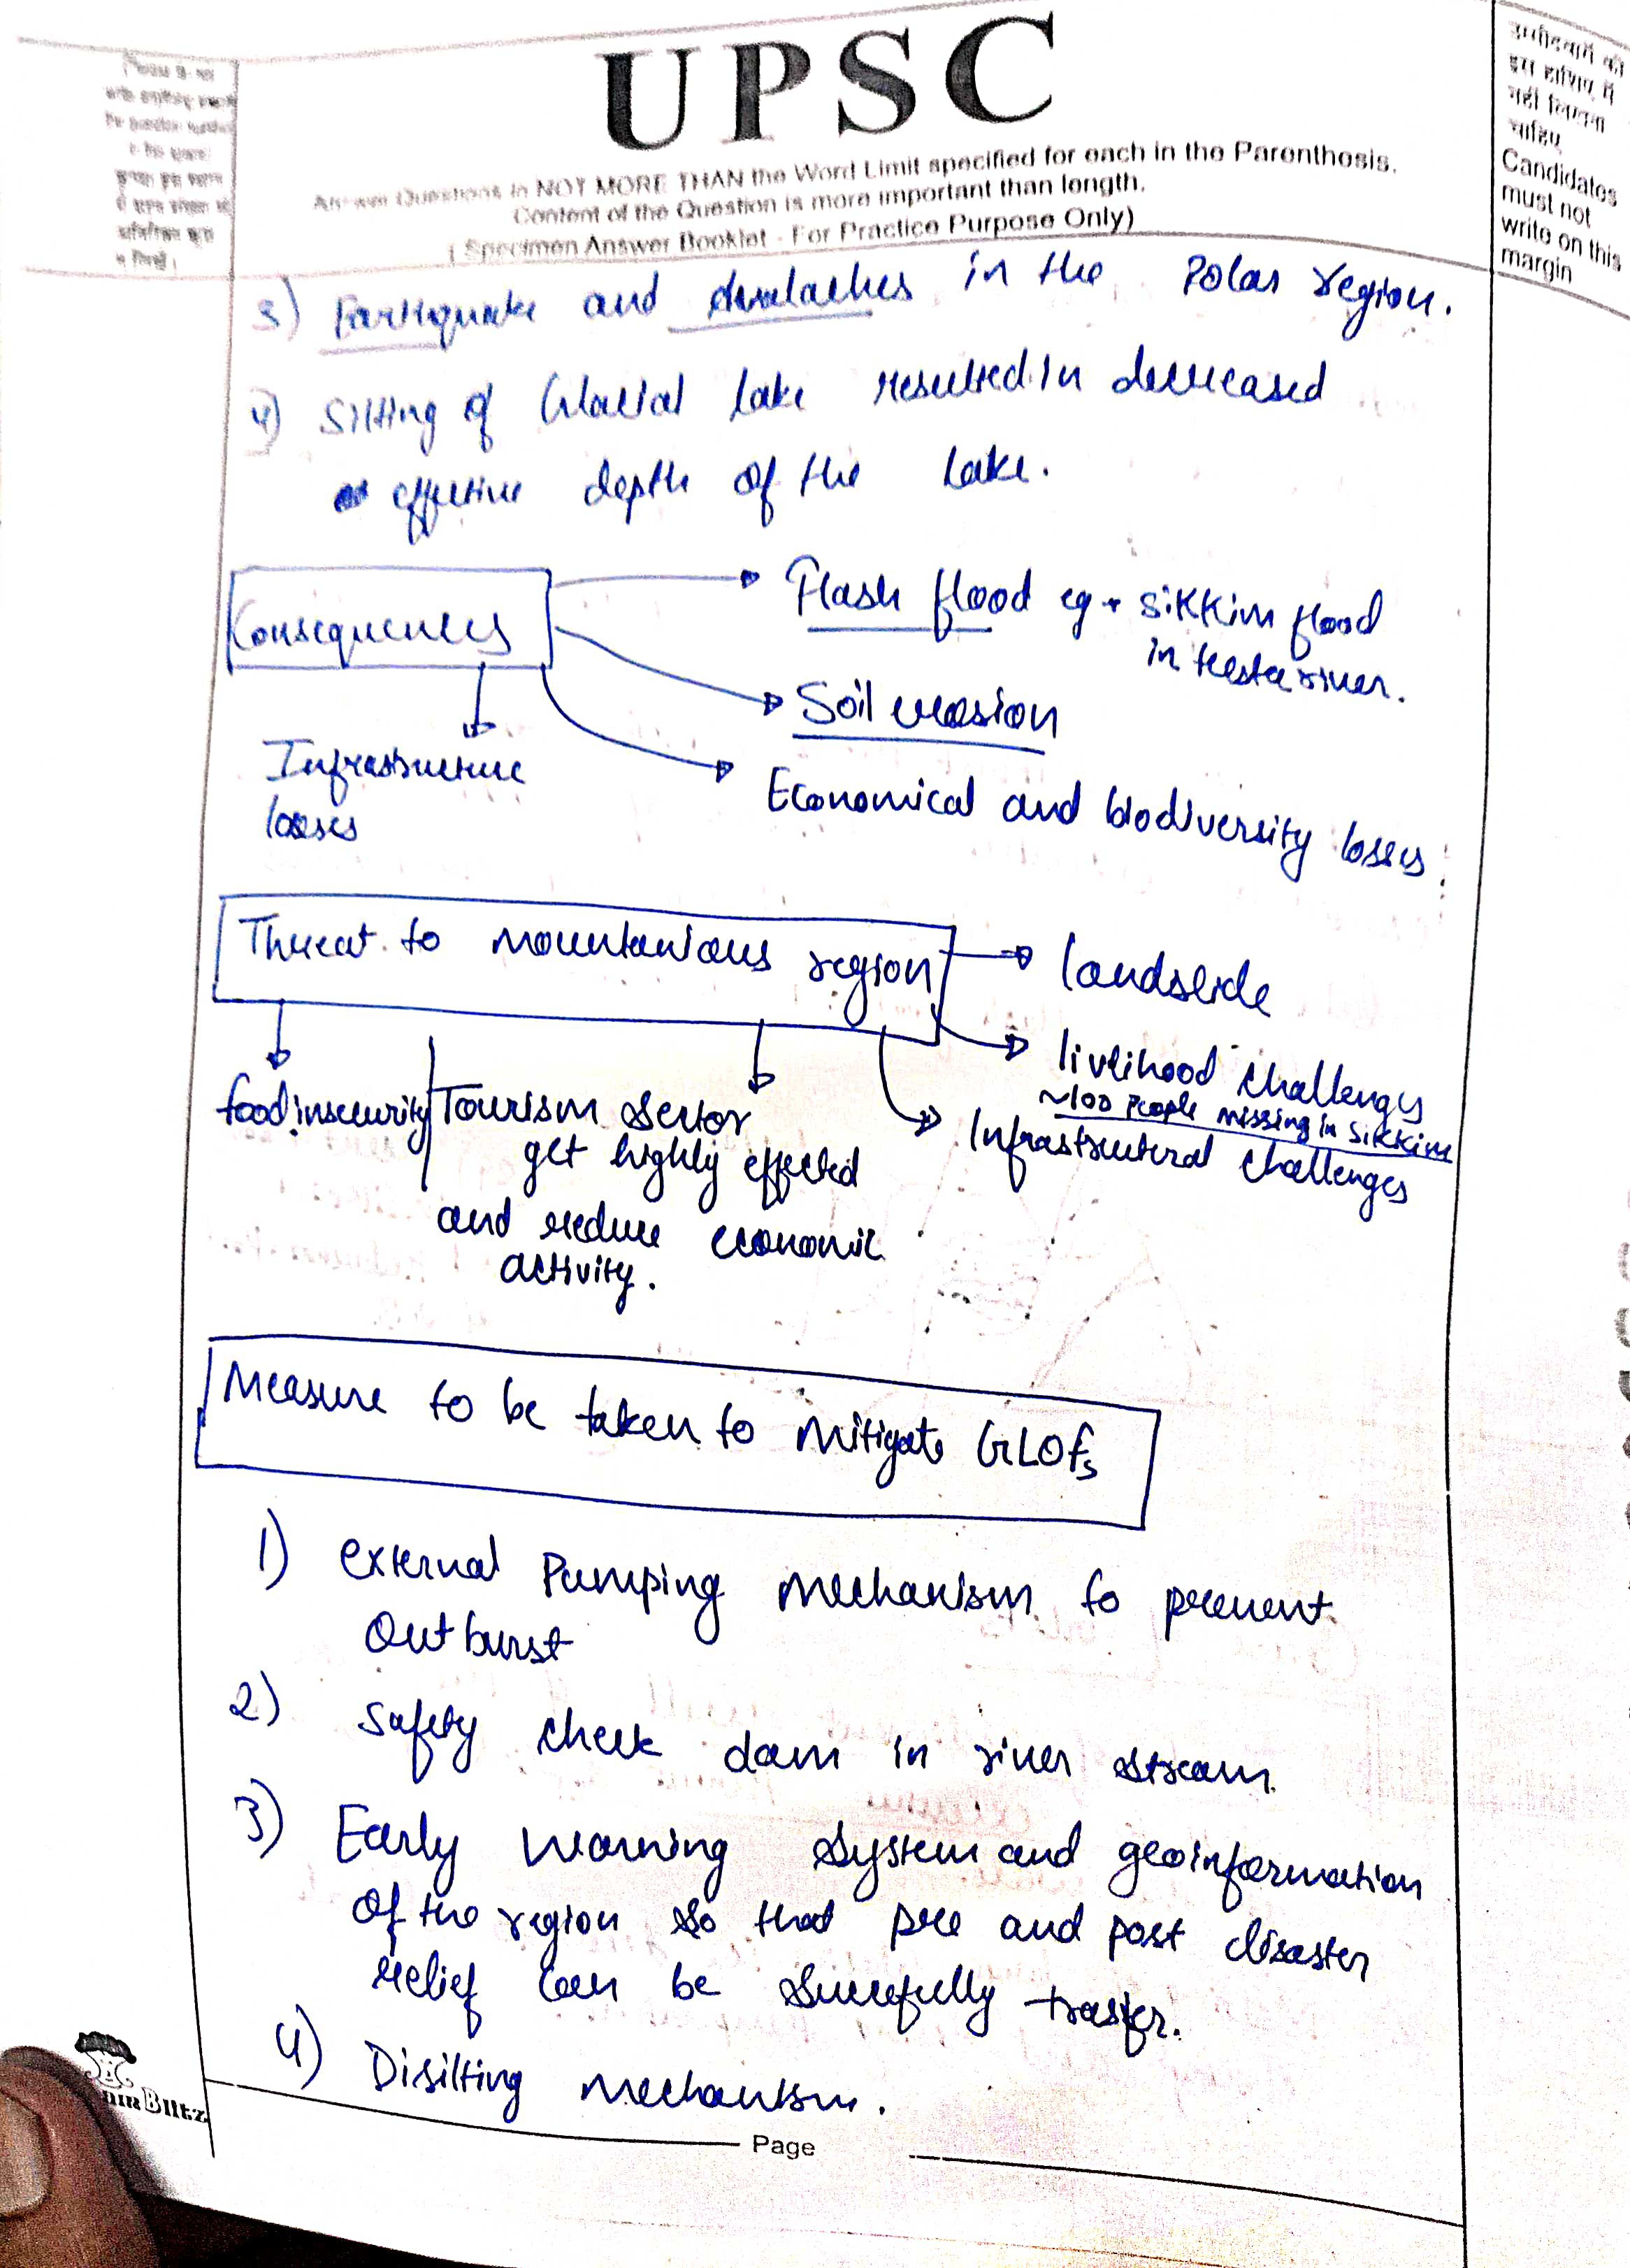 UPSC
Answer Questions in NOT MORE THAN the Word Limit specified for each in the Parenthesis.
Content of the Question is more important than length.
( Specimen Answer Booklet - For Practice Purpose Only)
उम्मीदवारों को
इस हाशिए में
नहीं लिखना
चाहिए
Candidates
must not
write on this
margin
3) Earthquake and in the Polar region.
4) Silting of Glacial lake resulted in decreased
effective depth of the Lake.
Consequences
Flash flood eg → Sikkim flood
in teesta river.
Soil erosion
Infrastructure
losses
Economical and biodiversity losses
Threat to mountanious region
landslide
livlihood challenges
~100 People missing in Sikkim
Infrastructural challenges
food insecurity
Tourism sector
get highly effected
and reduce economic
activity.
Measure to be taken to mitigate GLOFs
1) external Pumping mechanism to prevent
Outburst
2) Safety check dam in river stream.
3) Early warning system and geoinformation
of the region so that pre and post disaster
relief can be
4) Disilting mechanism.
Blitz
Page